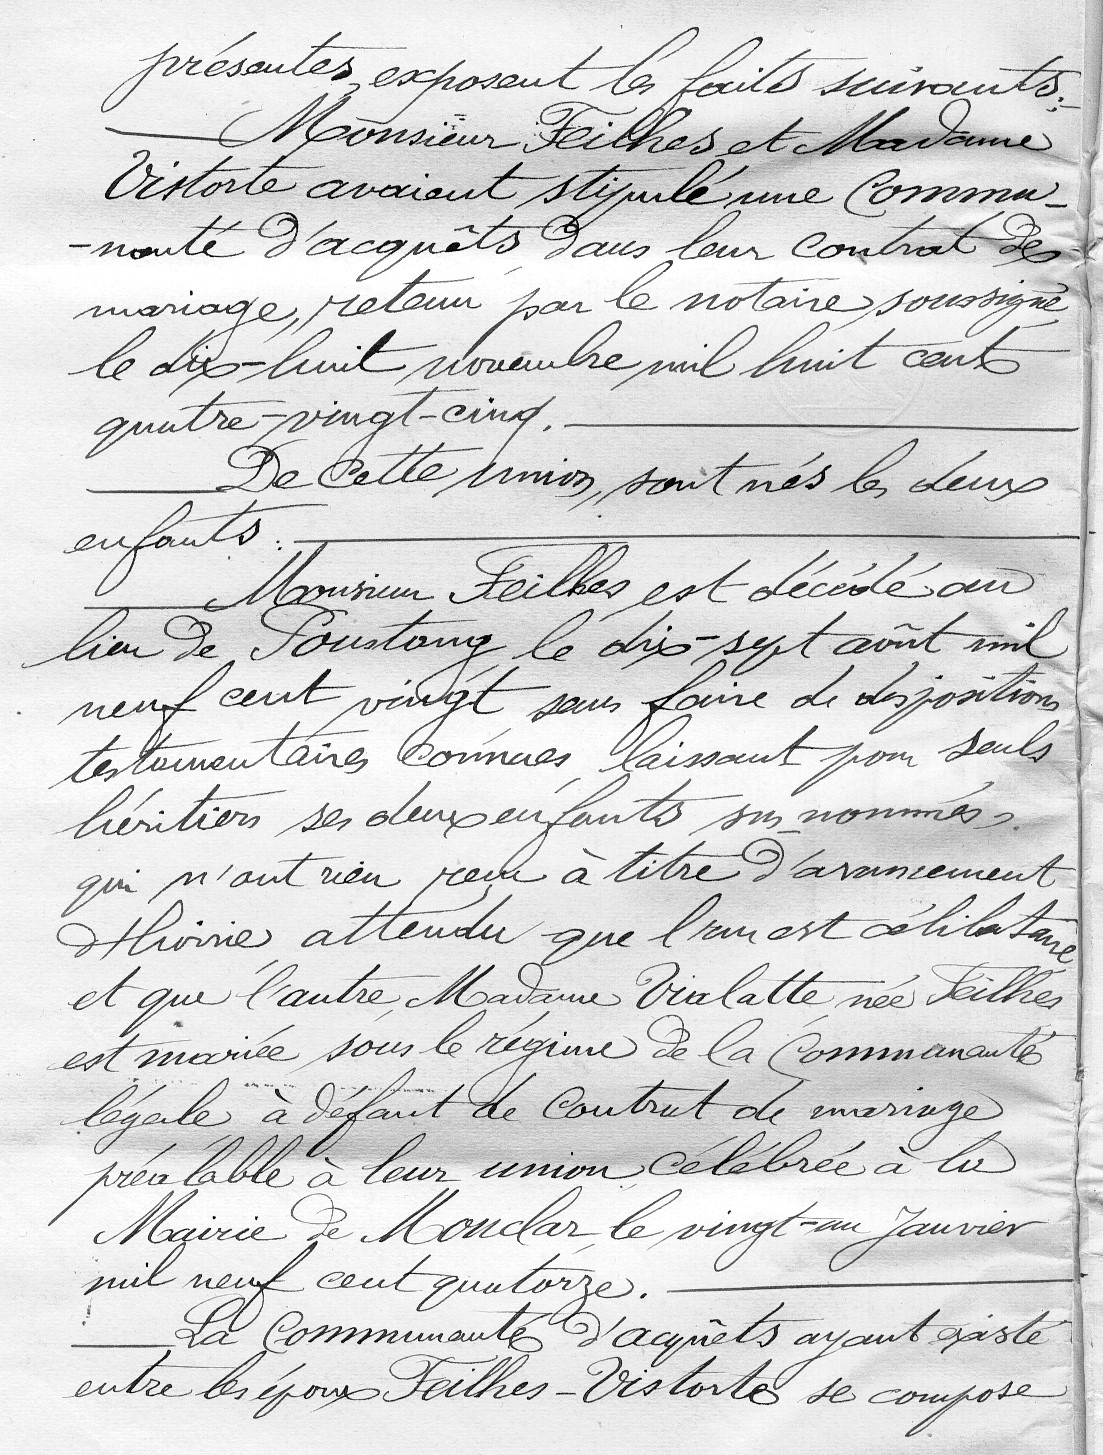 présentes, exposent les faits suivants :
Monsieur Feilhes et Madame
Vistorte avaient stipulé une Commu-
-nauté d'acquêts dans leur contrat de
mariage, retenu par le notaire soussigné
le dix-huit novembre mil huit cent
quatre-vingt-cinq.
De cette union, sont nés les deux
enfants.
Monsieur Feilhes est décédé au
lieu de Poustoung le dix-sept août mil
neuf cent vingt sans faire de dispositions
testamentaires connues, laissant pour seuls
héritiers ses deux enfants sus-nommés
qui n'ont rien reçu à titre d'avancement
d'hoirie, attendu que l'un est célibataire
et que l'autre, Madame Vialatte, née Feilhes
est mariée sous le régime de la Communauté
légale à défaut de Contrat de mariage
préalable à leur union célébrée à la
Mairie de Monclar, le vingt-un Janvier
mil neuf cent quatorze.
La Communauté d'acquêts ayant existé
entre les époux Feilhes-Vistorte se compose